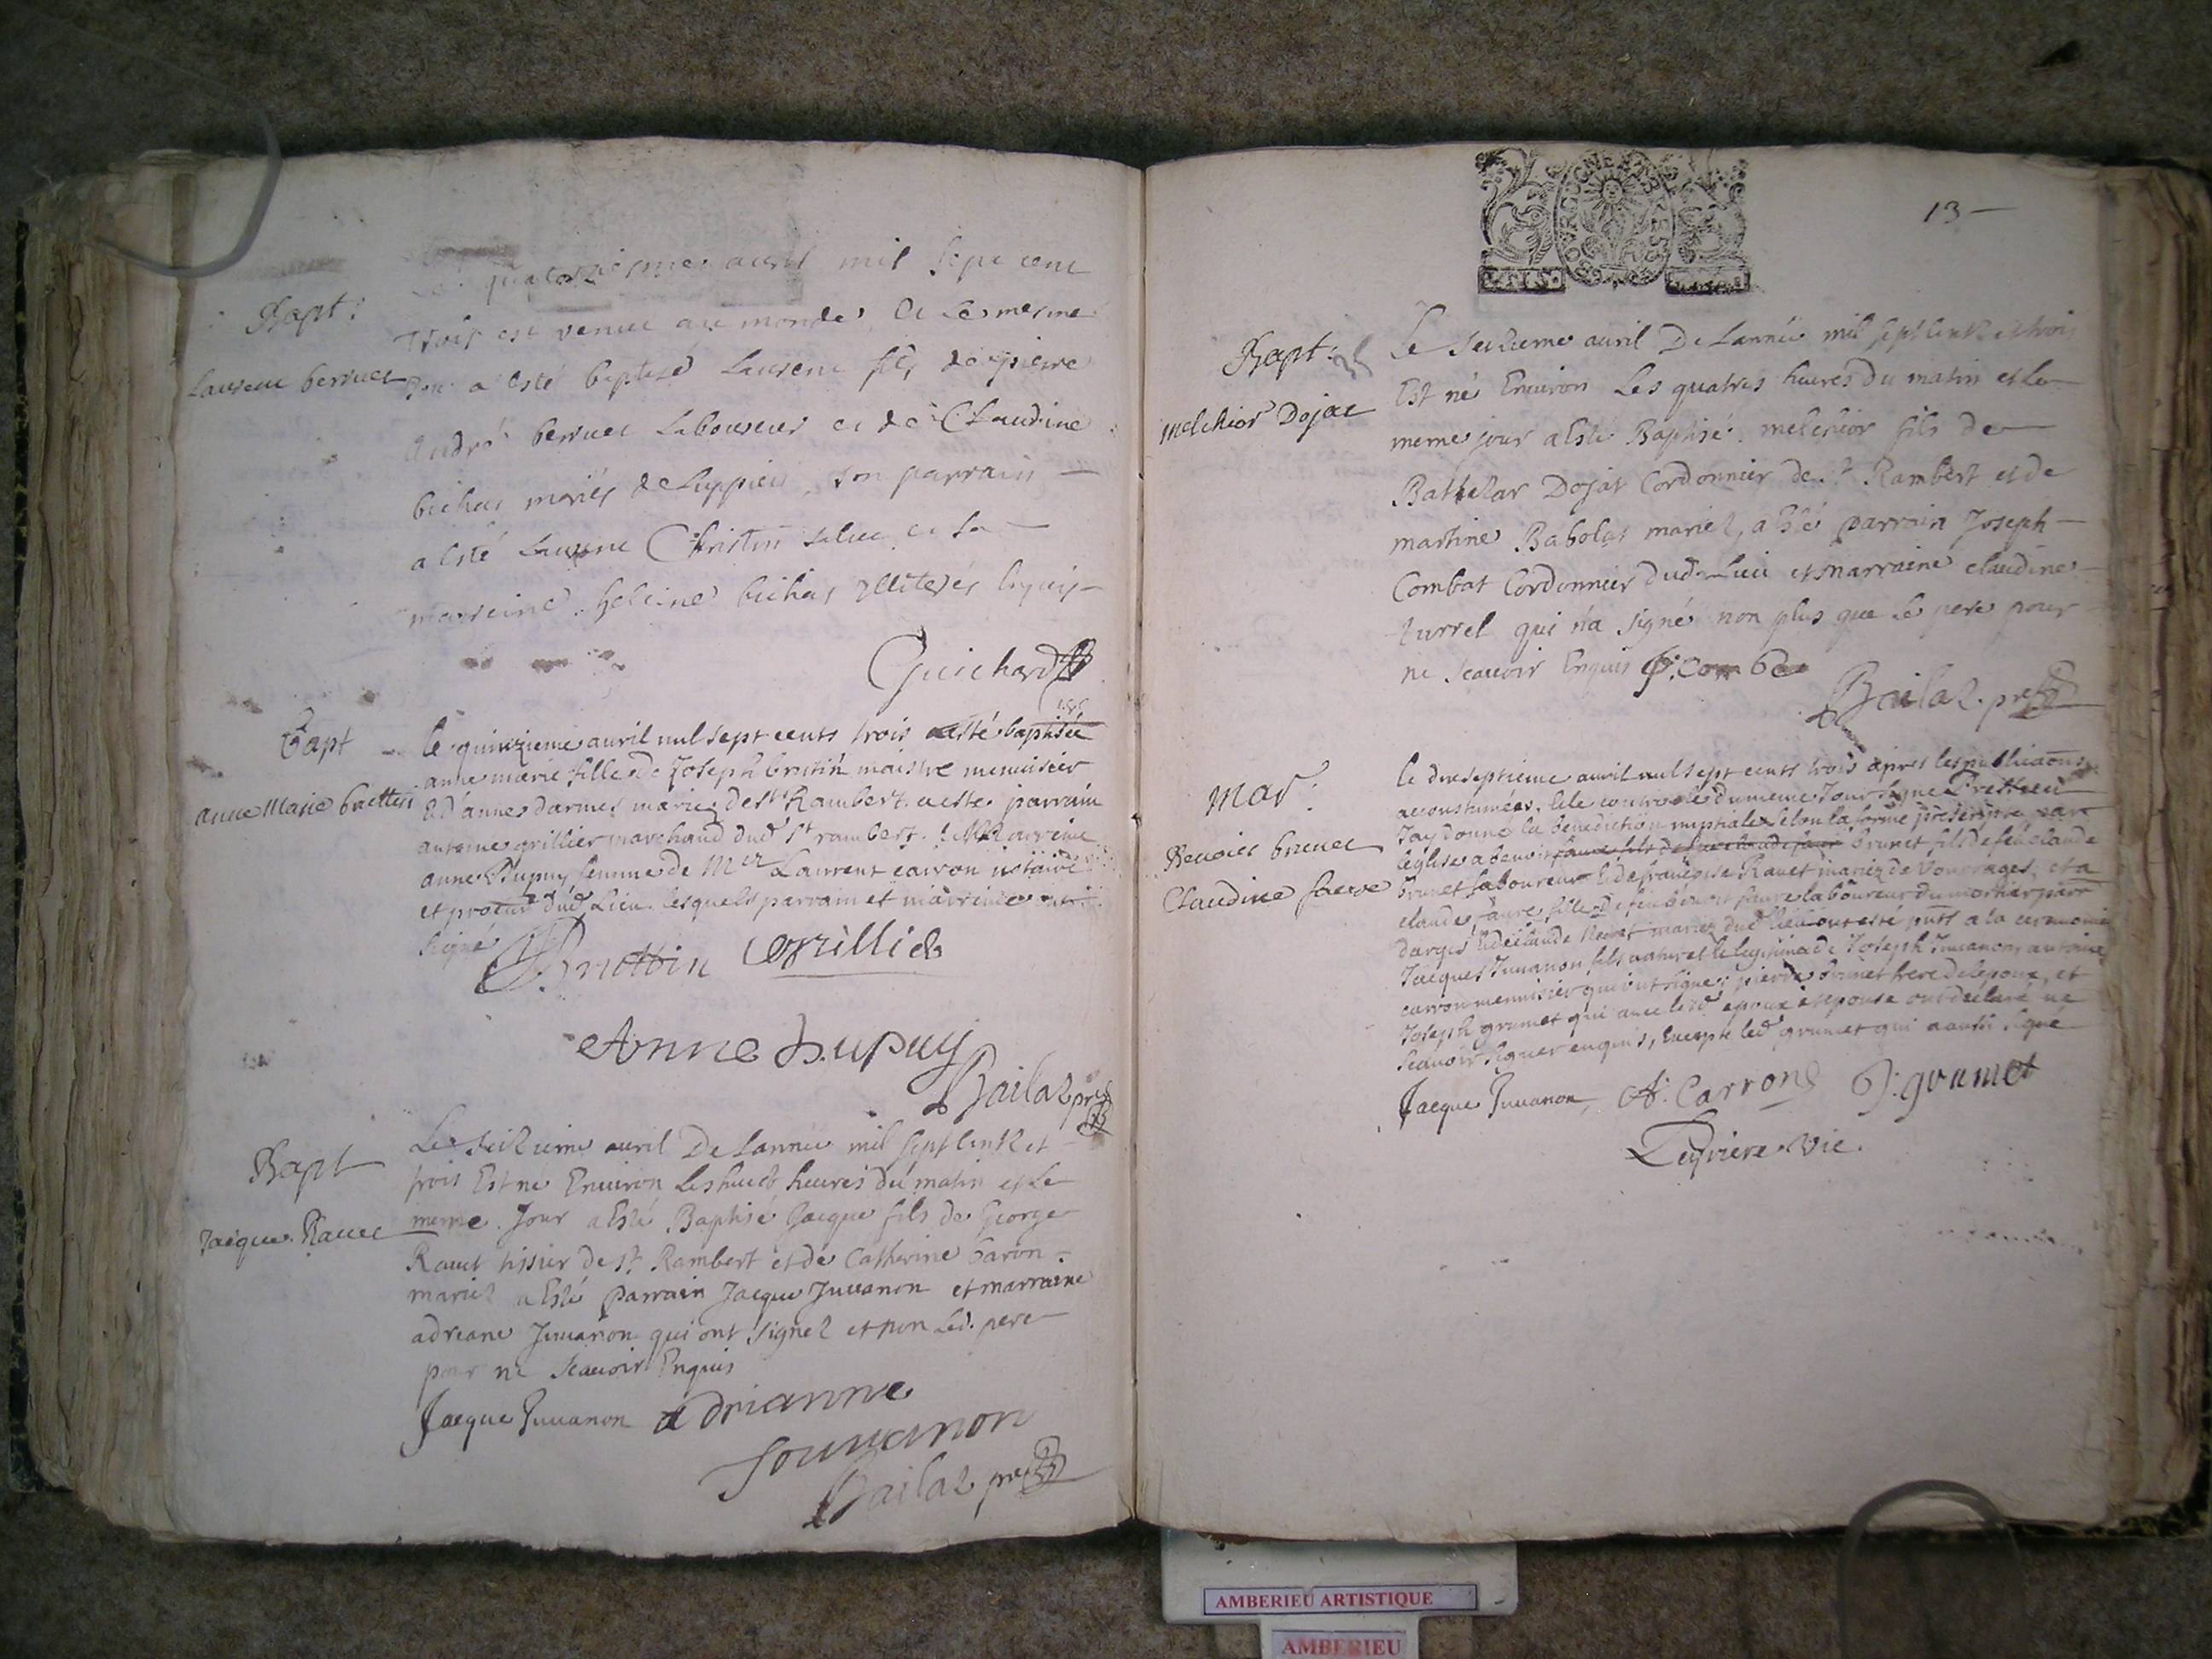 quatorziesme avril mil sept cent
Bapt:
trois est venu au monde et le mesme
Laurent berruet
jour a esté baptisé Laurent fils de pierre
André berruet Laboureur et de Claudine
bichat mariés de Luppieu, son parrain
a esté Laurent Christin et sa
marreine heleine bichat illiterés enquis
Guichard
Bapt
le quinzieme avril mil sept cents trois a esté baptisée
anne marie fille de Joseph brottin maistre menuisier
anne Marie brottin
& d'anne darmes mariez de St Rambert. a esté parrain
antoine grillier marchand dud St rambert. & Marreine
anne Dupuy femme de Mre Laurent carron notaire
et procur dud Lieu. lesquels parrain et marreine ont
signé
Brottin Grillier
Anne Dupuy
Bailat pre
Bapt
Le Seizieme avril De Lannée mil sept centz et
trois Est né Environ Les huict heures du matin et Le
meme Jour a Esté Baptisé Jacque fils de George
Jacque Ravet
Ravet tissier de St Rambert et de Catherine baron
mariez a Esté parrain Jacque Juvanon et marraine
adriane Juvanon qui ont signez et non Led. pere
pour ne Scavoir Enquis
Jacque Juvanon adrianne
Jouvanon
Bailat pre
13
Bapt:
Le Seizieme avril De Lannée mil sept centz et trois
Est né Environ Les quatres heures du matin et Le
melchior Dojat
meme jour a Esté Baptisé melchior fils de
Bathezar Dojat Cordonnier de St Rambert et de
martine Babolat mariez, a Esté parrain Joseph
Combat Cordonnier dud Lieu et marraine claudine
turrel qui n'a signé non plus que Le pere pour
ne Scavoir Enquis J: Combat
Bailat. pre
Mar:
le dixseptieme avril mil sept cents trois apres les publicaons
accoustumées, du meme Jour signe
Jay donné la benediction nuptiale selon la forme prescripte par
Benoict brunet
leglise a benoit brunet fils de feu claude
Claudine faure
brunet laboureur & de françoise Ravet mariez de Vourrages, et a
claude faure fille de feu benoit faure laboureur du mortier parr
dargis & de claude Neret mariez dud lieu ont esté pnts a la ceremonie
Jacques Juvanon fils naturel & legitime de Joseph Juvanon, antoine
carron menuisier qui ont signe; pierre brunet frere de lepoux, et
Joseph grumet qui avec lesd epoux et epouse ont déclaré ne
scavoir signer enquis, Excepte led grumet qui a aussi signé
Jacque Juvanon, A: Carron J: grumet
vic.
AMBERIEU ARTISTIQUE
AMBERIEU